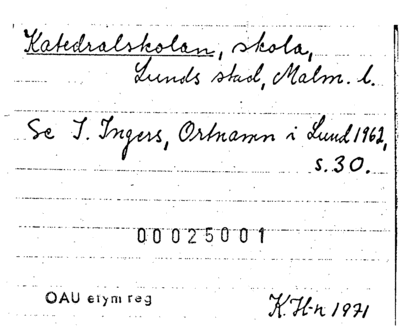 Katedralskolan, skola,
Lunds stad, Malm. l.
Se I. Ingers, Ortnamn i Lund 1962,
s. 30.
00025001
OAU etym reg
K.H-n 1971